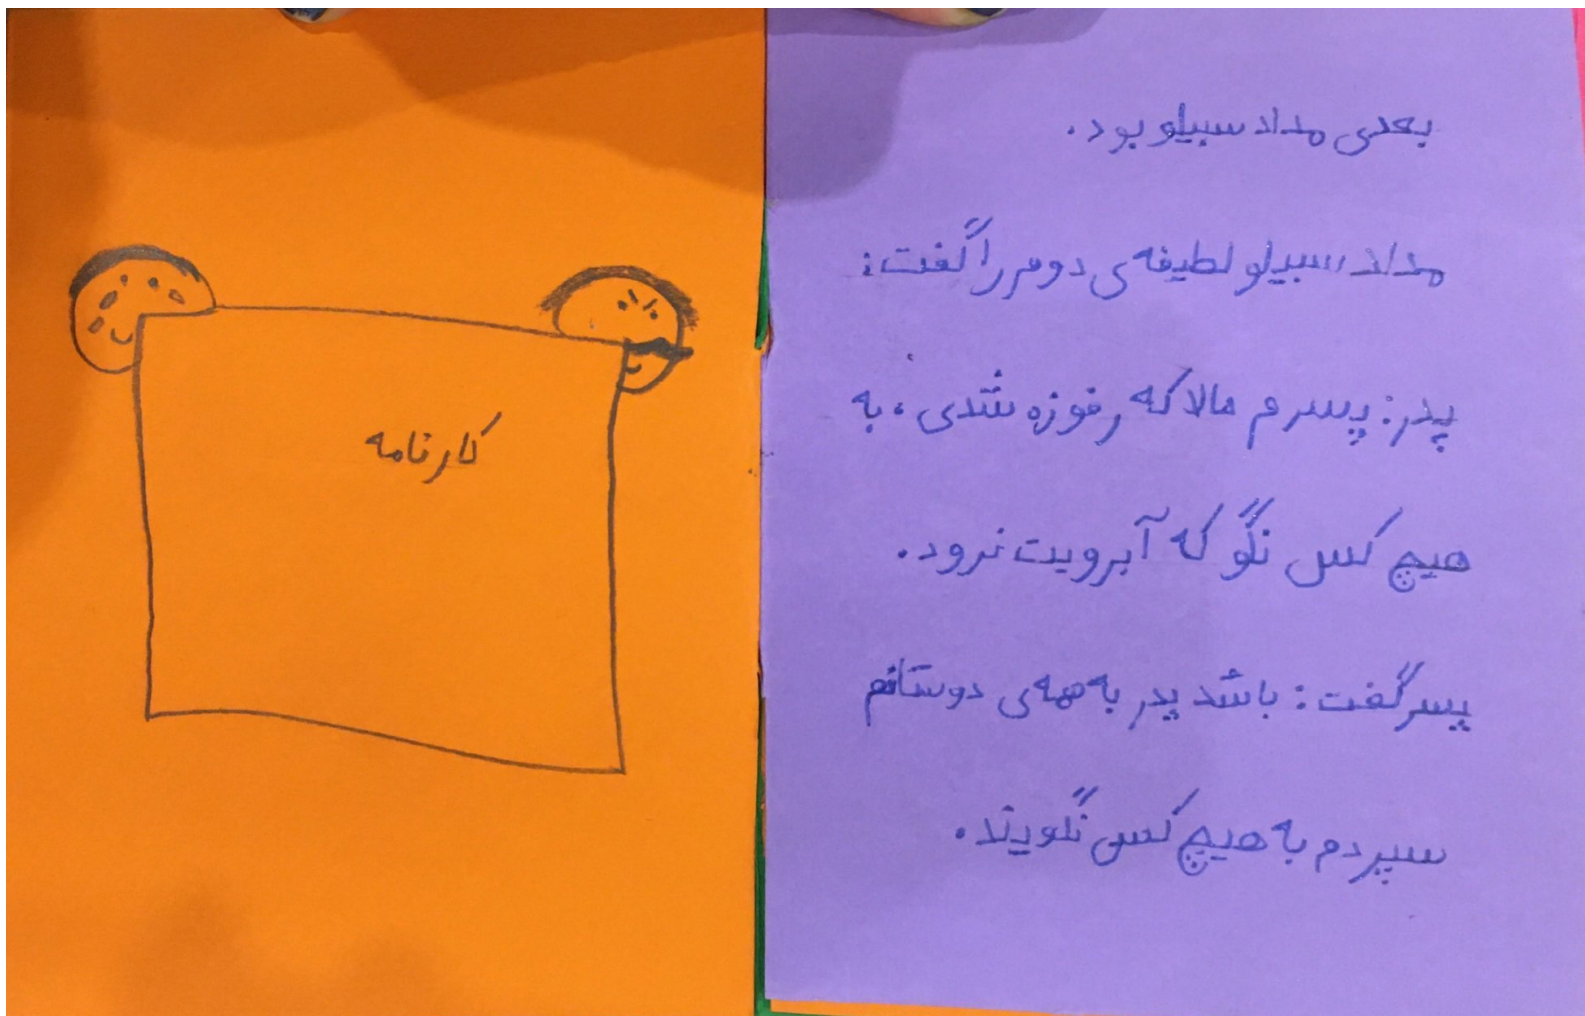 بعدی مداد سبیلو بود.
مداد سبیلو لطیفه‌ی دوم را گفت:
پدر: پسرم حالا که رفوزه شدی، به
هیچ کس نگو که آبرویت نرود.
پسر گفت: باشد پدر به همه‌ی دوستانم
سپردم به هیچ کس نگویند.
کارنامه